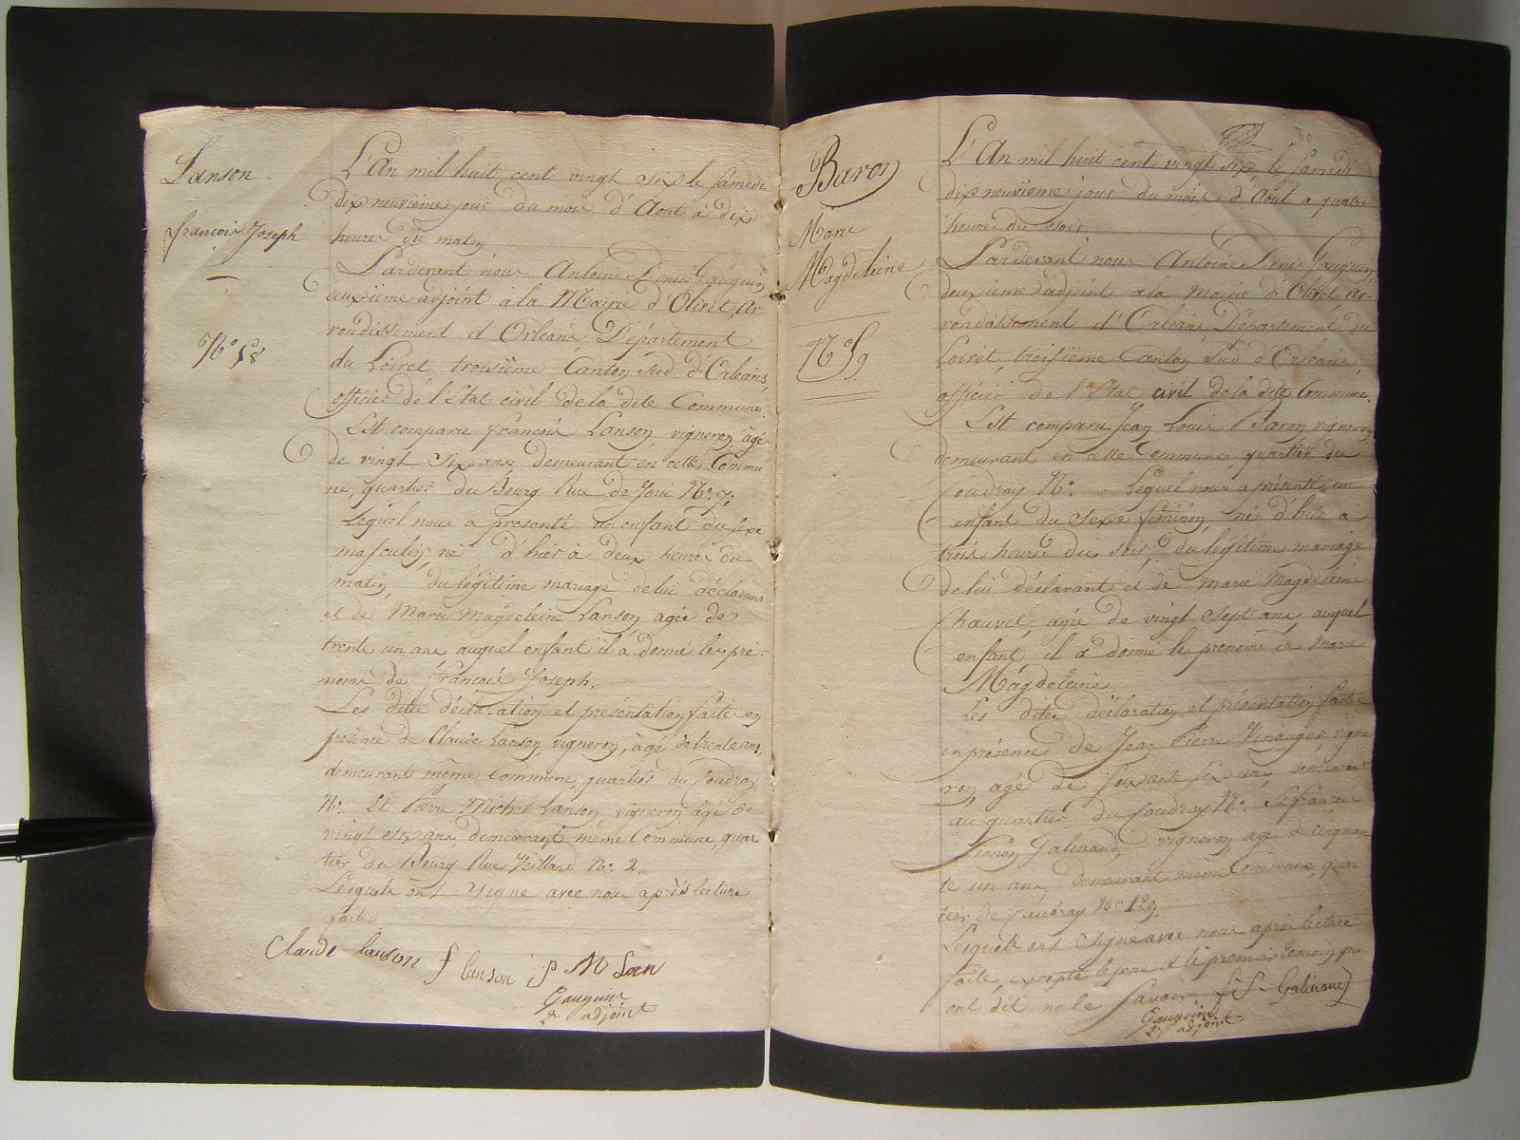 Lanson
françois Joseph
N.º 58
L'An mil huit cent vingt six le samedi
dix neuvieme jour du mois d'Aout à dix
heures du matin
Pardevant nous Antoine Denis Gauguin
deuxième adjoint à la Mairie d'Olivet, Ar-
rondissement d'Orléans, Département
du Loiret, troisième Canton Sud d'Orléans,
officier de l'Etat civil de la dite Commune.
Est comparu françois Lanson, vigneron, âgé
de vingt six ans, demeurant en cette Commu
ne, quartier du Bourg Rue de Joui N.º 7,
Lequel nous a presenté un enfant du sexe
masculin, né d'hier à deux heures du
matin, du légitime mariage de lui déclarant
et de Marie Magdeleine Lanson agée de
trente un ans auquel enfant il à donné les pré-
noms de françois Joseph.
Les dites déclaration et presentation faite en
présence de Claude Lanson, vigneron, âgé de trente ans,
demeurant même commune, quartier du Coudray
N.º Et Pierre Michel Lanson, vigneron âgé de
vingt et six ans, demeurant même Commune, quar
tier du Bourg Rue N.º 2.
Lesquels ont signé avec nous après lecture
faite.
Claude lanson f lanson P M Lan
Gauguin
2e adjoint
Baron
Marie
Magdeleine
N.º 59
L'An mil huit cent vingt six, le samedi
dix neuvieme jour du mois d'Aout à quatre
heures du soir
Pardevant nous Antoine Denis Gauguin,
deuxième adjoint à la Mairie d'Olivet, Ar-
rondissement d'Orléans, Département du
Loiret, troisième Canton Sud d'Orléans,
officier de l'Etat civil de la dite Commune.
Est comparu Jean Louis Baron, vigneron
demeurant en cette Commune, quartier du
Coudray N.º Lequel nous a présenté un
enfant du sexe féminin, né d'hier à
trois heures du soir, du légitime mariage
de lui déclarant et de marie Magdeleine
Chauvet, agée de vingt sept ans, auquel
enfant il à donné le prénoms de Marie
Magdeleine.
Les dites déclaration et présentation faite
en présence de Jean Pierre Vinaigre, vigne
ron, agé de soixante six ans, demeurant
au quartier du Coudray N.º Et françois
Simon Galinand, vigneron, agé de cinquan
te un ans, demeurant même Commune, quar
tier de Coudray N.º 129.
Lesquels ont signé avec nous après lecture
faite, excepté le pere et le premier temoin qui
ont dit ne le savoir f S Galinand
Gauguin
2e adjoint